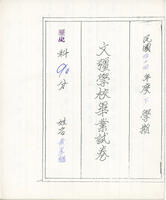 民國 年度 學期
文彊學校畢業試卷
歷史 科 90 分 姓名